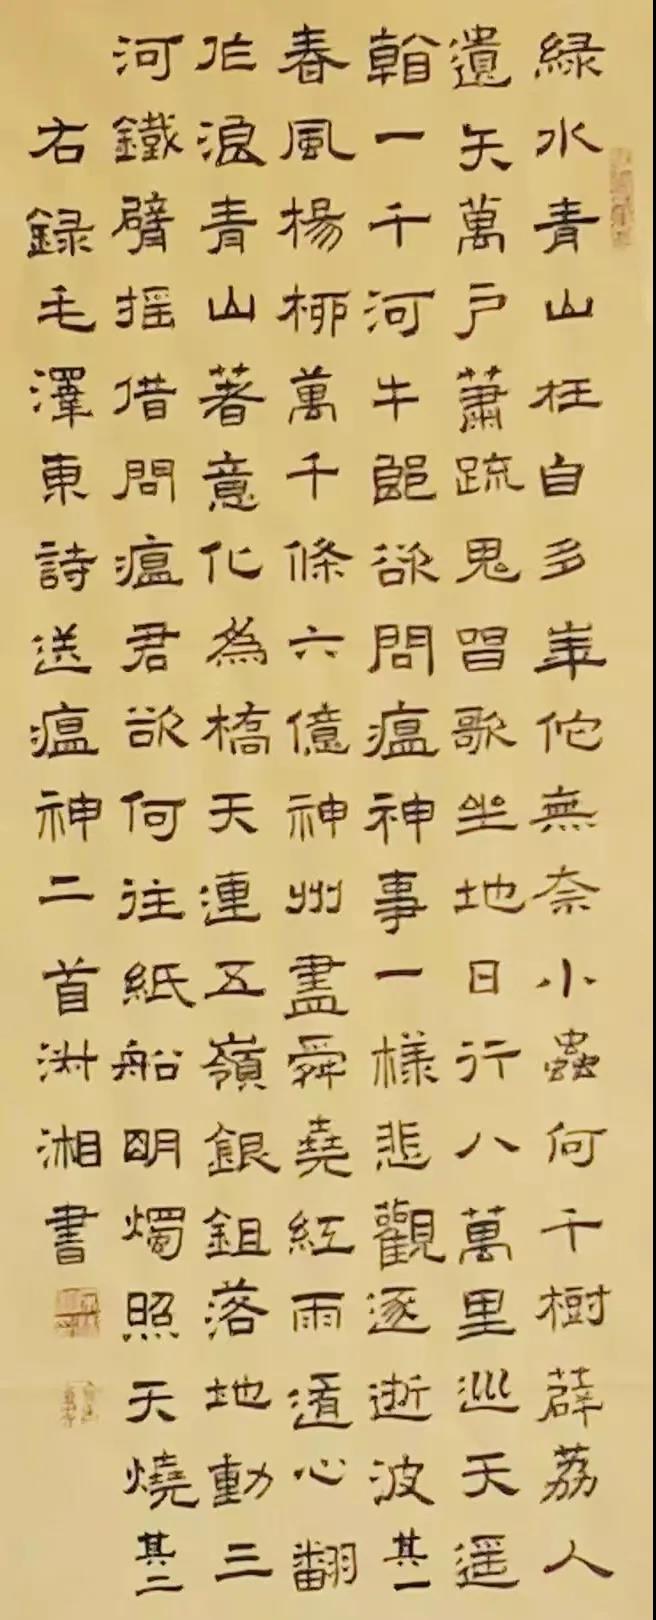 緑水青山枉自多華佗無奈小蟲何千樹薜荔人
遺矢萬戶蕭疏鬼昌歌坐地日行八萬里巡天遥
看一千河牛郎欲問瘟神事一樣悲觀逐逝波其一
春風楊柳萬千條六億神州盡舜堯紅雨隨心翻
作浪青山著意化為橋天連五嶺銀鉏落地動三
河鐵臂摇借問瘟君欲何往紙船明燭照天燒其二
右録毛澤東詩送瘟神二首湘書